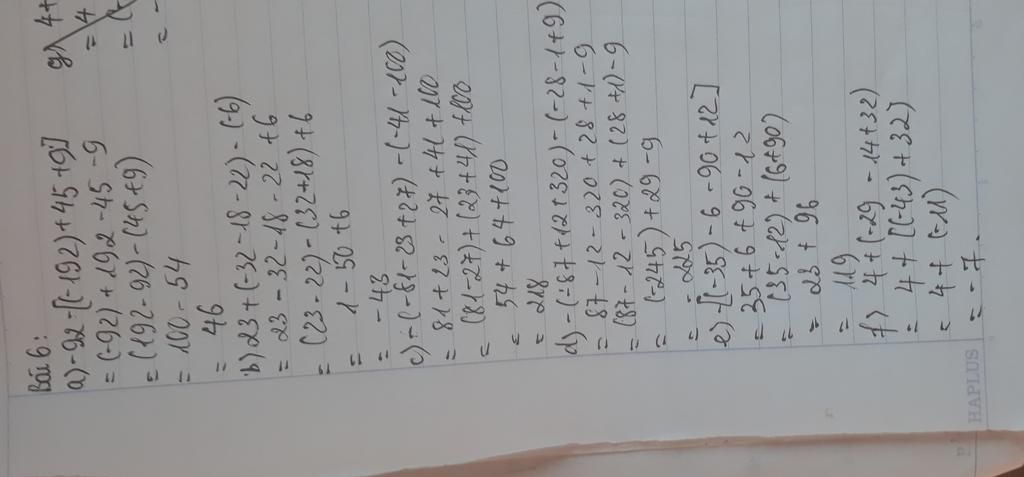 Bài 6:
a) -92 - [(-192) + 45 + 9]
= (-92) + 192 - 45 - 9
= (192 - 92) - (45 + 9)
= 100 - 54
= 46
b) 23 + (-32 - 18 - 22) - (-6)
= 23 - 32 - 18 - 22 + 6
= (23 - 22) - (32 + 18) + 6
= 1 - 50 + 6
= -43
c) - (-81 - 23 + 27) - (-41 - 100)
= 81 + 23 - 27 + 41 + 100
= (81 - 27) + (23 + 41) + 100
= 54 + 64 + 100
= 218
d) - (-87 + 12 + 320) - (-28 - 1 + 9)
= 87 - 12 - 320 + 28 + 1 - 9
= (87 - 12 - 320) + (28 + 1) - 9
= (-245) + 29 - 9
= -225
e) - [(-35) - 6 - 90 + 12]
= 35 + 6 + 90 - 12
= (35 - 12) + (6 + 90)
= 23 + 96
= 119
f) 4 + (-29 - 14 + 32)
= 4 + [(-43) + 32]
= 4 + (-11)
= -7.
g) 4 +
= 4
= (
= -
HAPLUS